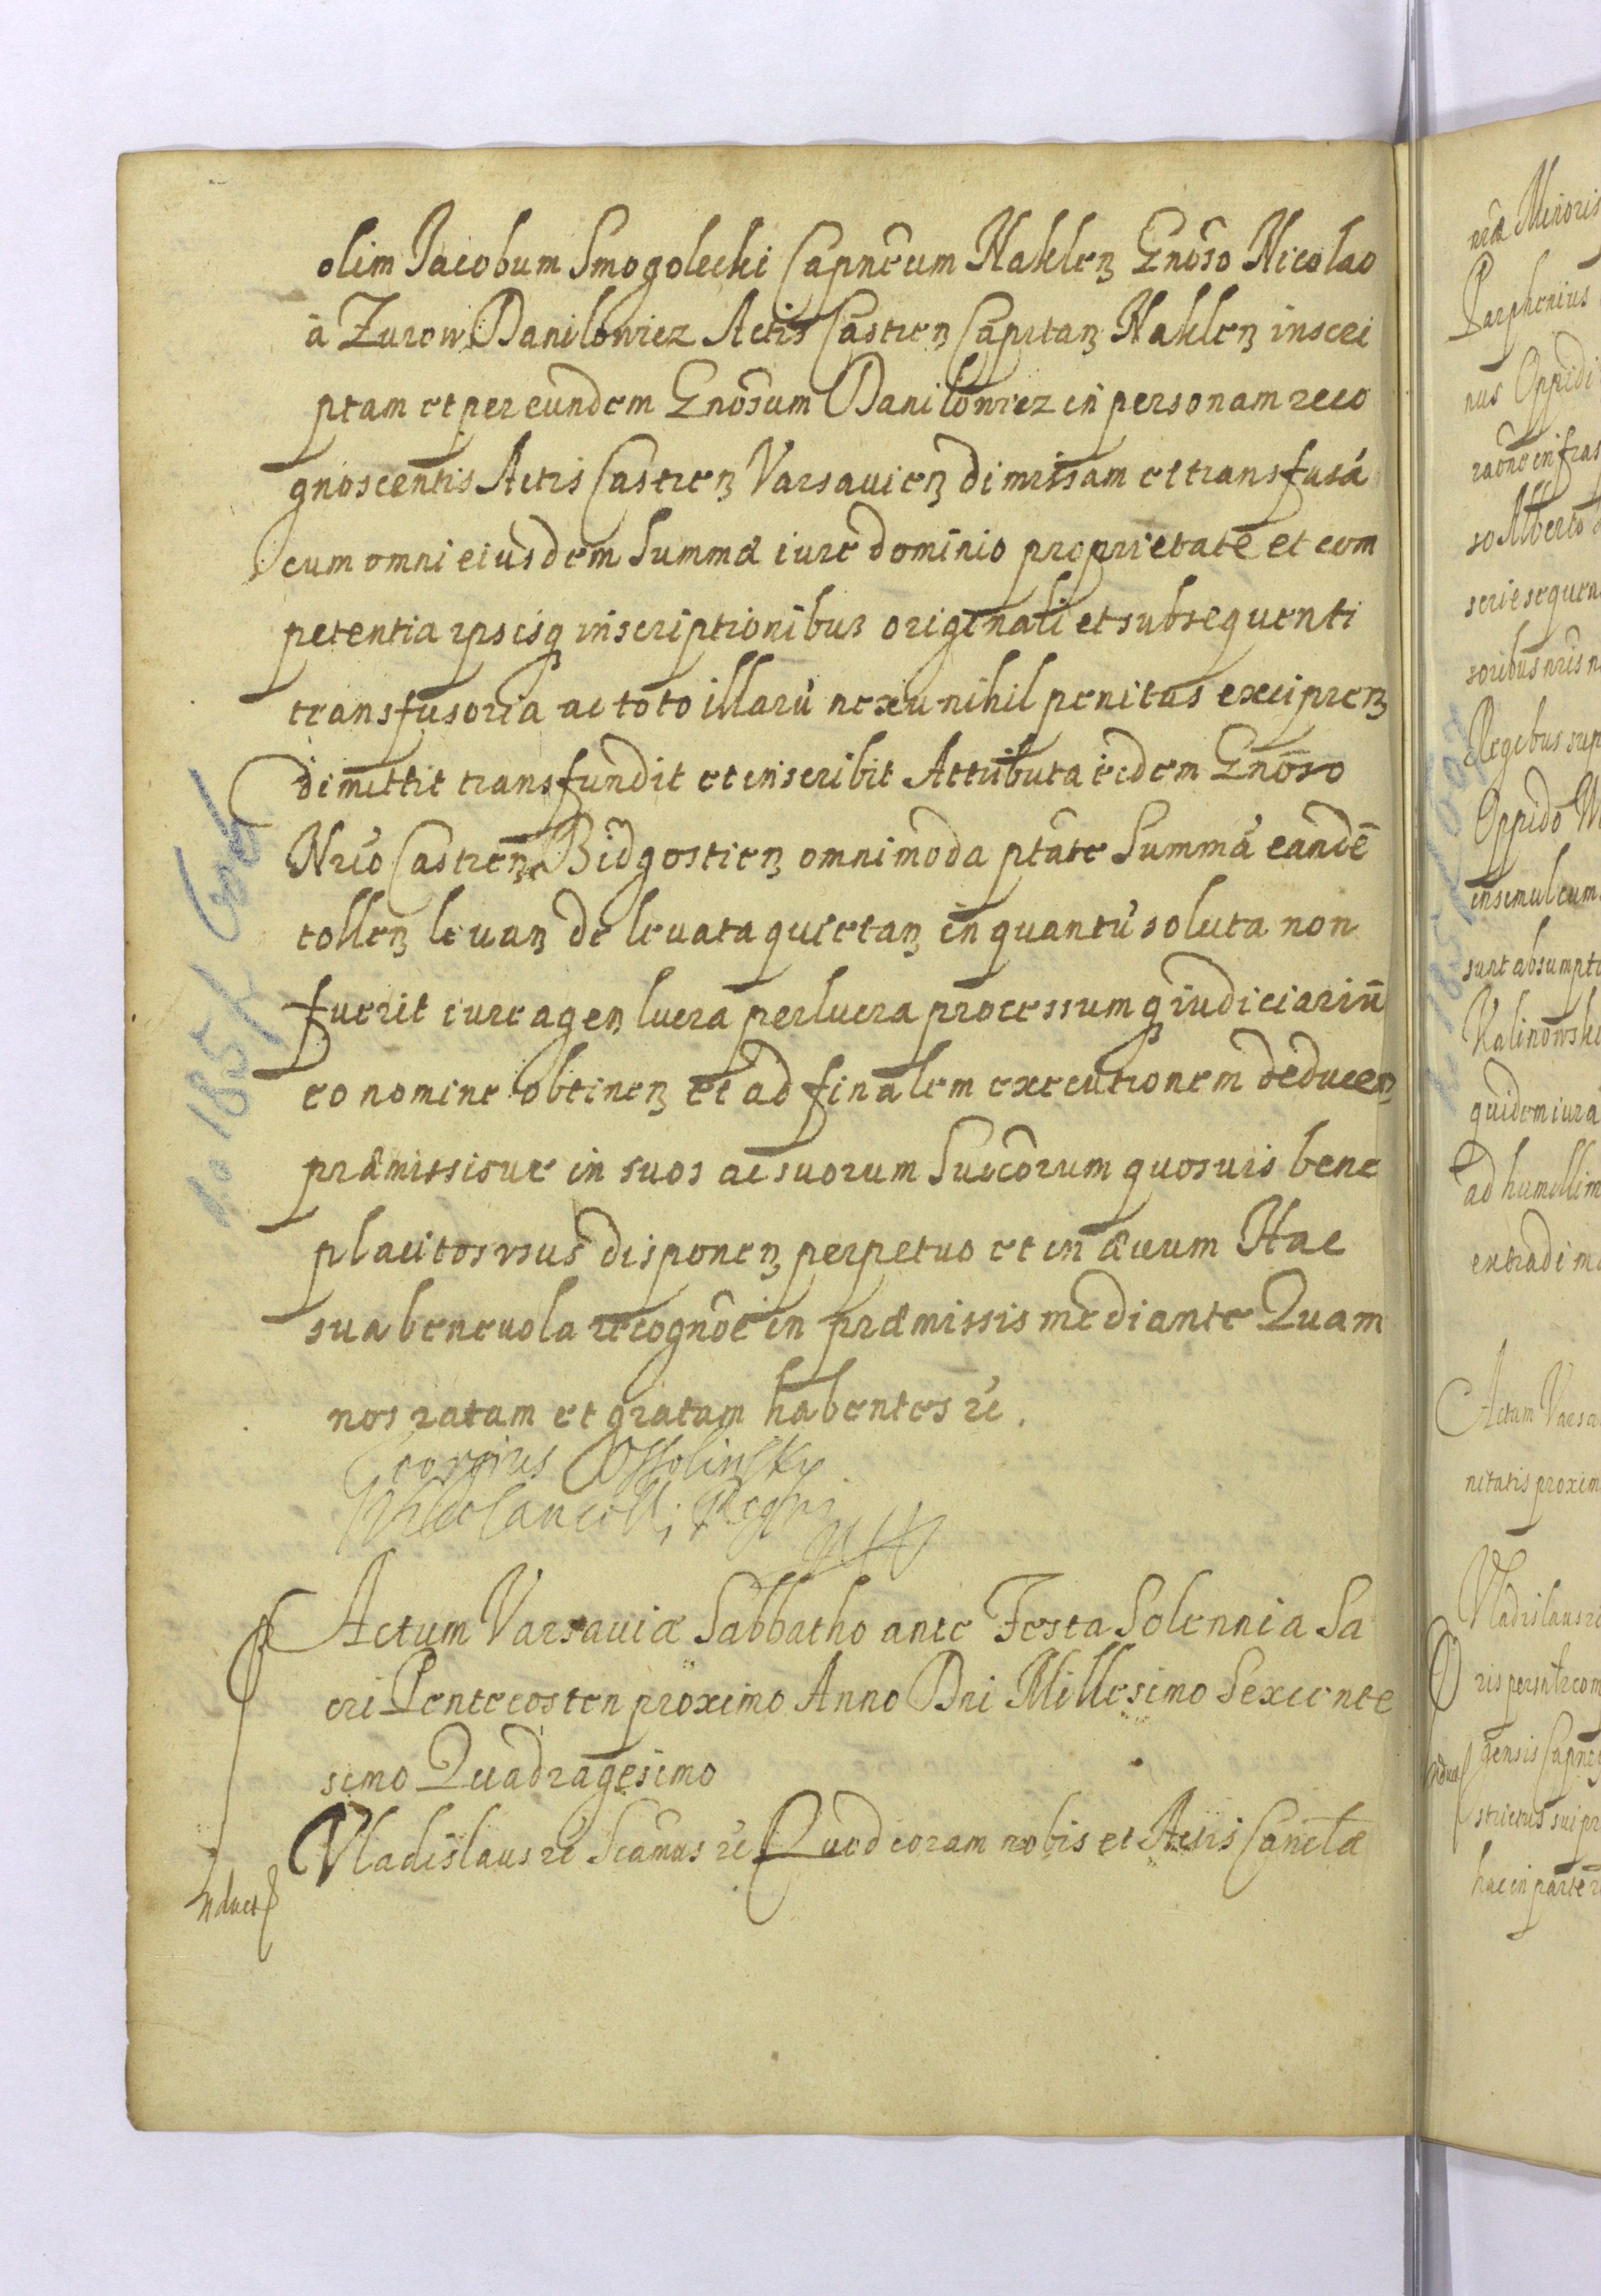 olim Jacobum Smogolecki Capnēum Naklen̄ Gnōso Nicolao
à Zurow Danilowicz Actis Castren̄ Capitan̄ Naklen̄ inscri
ptam et per eundem Gnōsum Danilowicz in personam reco
gnoscentis Actis Castren̄ Varsauien̄ dimissam et transfusā
cum omni eiusdem Summæ iure dominio proprietate et com
petentia ipsisq inscriptionibus originali et subsequenti
transfusoria ac toto illarū nexu nihil penitus excipien̄
dimittit transfundit et inscribit Attributa eidem Gnōso
Nrīo Castren̄ Bidgostien̄ omnimoda ptāte Summā eandē
tollen̄ leuan̄ de leuata quietan̄ in quantū soluta non
fuerit iure agen̄ lucra perlucra processumq iudiciariū
eo nomine obtinen̄ et ad finalem executionem deducen̄
præmissisue in suos ac suorum Succōrum quosuis bene
placitos vsus disponen̄ perpetuo et in æuum Hac
sua beneuola recognōe in præmissis mediante Quam
nos ratam et gratam habentes rc.
Georgius Ossolinsky
Actum Varsauiæ Sabbatho ante Festa Solennia Sa
cri Pentecosten proximo Anno Dni Millesimo Sexcente
simo Quadragesimo
Vladislaus rc Scāmus rc Quod coram nobis et Actis Canclæ
nræ Minoris
Parphenius
nus Oppidi
raōne infras
so Alberto
serie sequen
soribus nrīs n
Regibus sup
Oppido M
insimul cum
sunt absumpt
Kalinowski
quidem iura
ad humillim
extradi m
Actum Varsa
nitatis proxim
Vladislaus rc
gensis Capne
strictus sui pr
hac in parte r